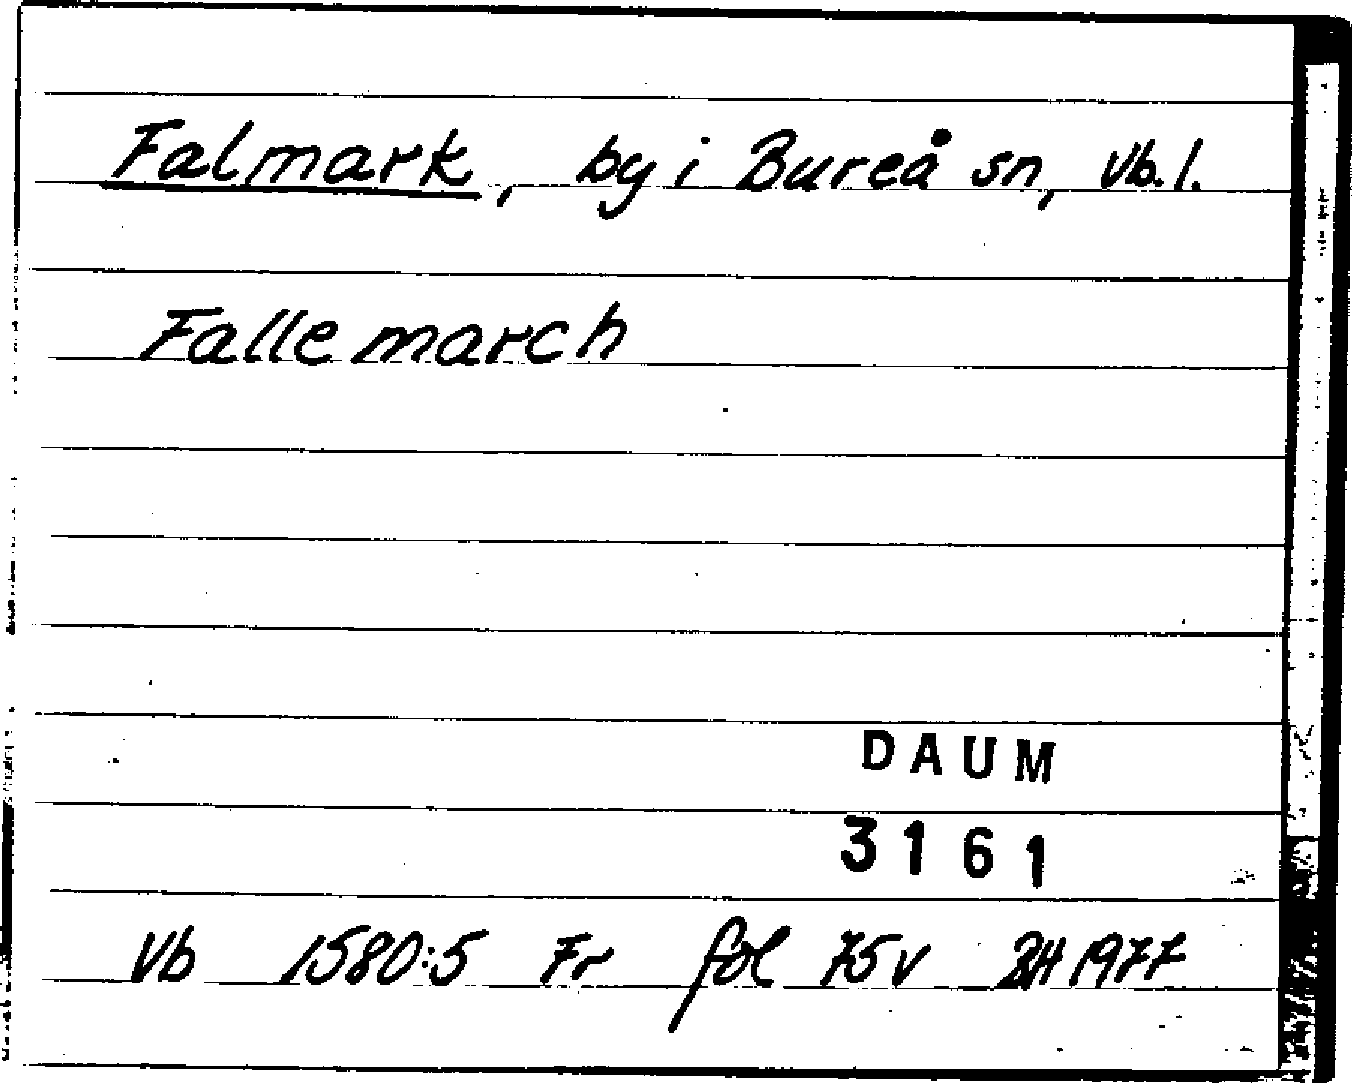 Falmark, by i Bureå sn, Vb. l.
Fallemarch
DAUM
3161
Vb 1580:5 Fr fol 75v BH 1977